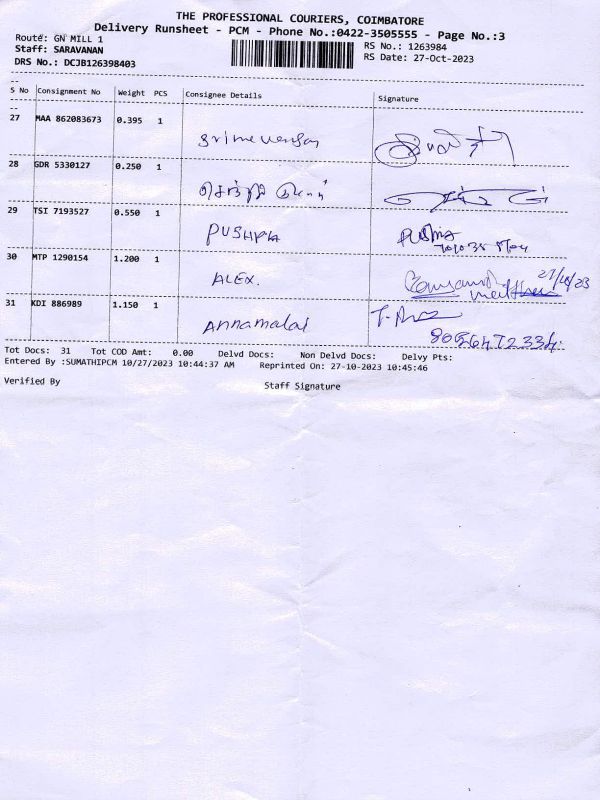 THE PROFESSIONAL COURIERS, COIMBATORE
Delivery Runsheet - PCM - Phone No.:0422-3505555 - Page No.:3
Route: GN MILL 1 RS No.: 1263984
Staff: SARAVANAN RS Date: 27-Oct-2023
DRS No.: DCJB126398403
S No Consignment No Weight PCS Consignee Details Signature
27 MAA 862083673 0.395 1
28 GDR 5330127 0.250 1
29 TSI 7193527 0.550 1 PUSHPA
30 MTP 1290154 1.200 1 ALEX. 27/10/23
31 KDI 886989 1.150 1 Annamalai
8056472334
Tot Docs: 31 Tot COD Amt: 0.00 Delvd Docs: Non Delvd Docs: Delvy Pts:
Entered By :SUMATHIPCM 10/27/2023 10:44:37 AM Reprinted On: 27-10-2023 10:45:46
Verified By Staff Signature